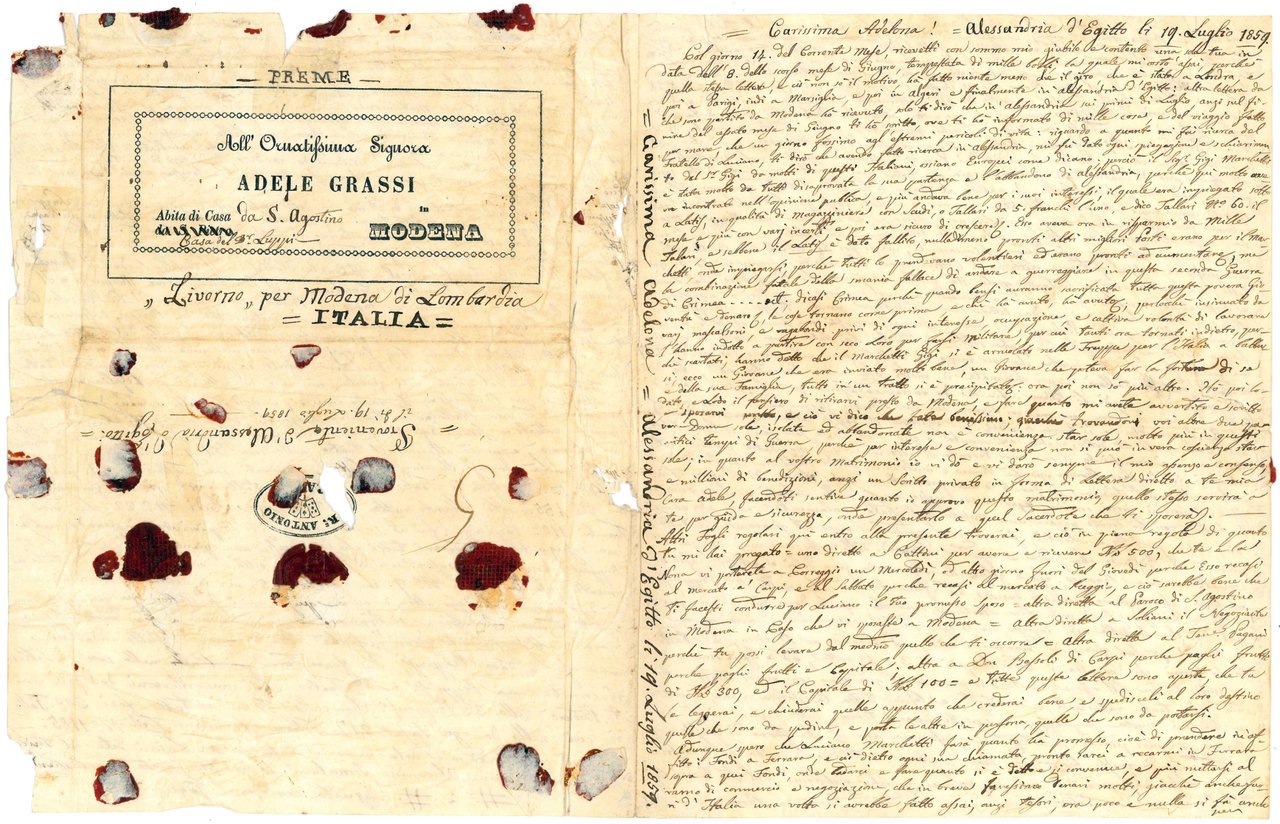 = PREME =
All' Ornatissima Signora
ADELE GRASSI
Abita di Casa da S. Agostino in
MODENA
Casa del Sr. Leppi
„ Livorno „ per Modena di Lombardia
= ITALIA =
Proveniente d'Alessandria d'Egitto =
il dì 19. Luglio 1859. =
Rr. ANTONIO
= Carissima Adelona = Alessandria d'Egitto li 19. Luglio 1859.
= Carissima Adelona! = Alessandria d'Egitto li 19. Luglio 1859.
Col giorno 14. del Corrente Mese ricevetti con sommo mio giubilo e contento una tua in
data dell' 8. dello scorso mese di Giugno, tempestata di mille bolli la quale mi costò assai, perchè
quella stessa lettera, e ciò non so il motivo ha fatto niente meno che il giro che è stata a Londra, e
poi a Parigi, indi a Marsiglia, e poi in Algeri e finalmente in Alessandria d'Egitto: altra lettera da
che sono partito da Modena ho ricevuto, solo ti dirò che in Alessandria sui primi di Luglio, anzi sul fi-
nire del cessato mese di Giugno ti ho scritto, ove ti ho informato di mille cose, e del viaggio fatto
per mare, che un giorno fossimo agl'estremi pericoli di vita: riguardo a quanto mi fai ricerca del
Fratello di Luciano, ti dirò che avendo fatto ricerca in Alessandria, mi fu dato ogni spiegazione e schiarimen-
to del Sr. Gigi da molti di questi Italiani ossiano Europei come dicono; perciò il Sigr. Gigi Marchetti
è stata molto da tutti disaprovata la sua partenza e l'abbandono di Alessandria, perchè qui molto ave-
va incontrato nell'opinione publica, e più andava bene per i suoi interessi il quale era impiegato sotto
a Latif, in qualità di magazziniere con Scudi, o Tallari da 5. franchi l'uno, e dico Tallari No. 60. il
mese e più con varj incerti, e poi era sicuro di crescere. Esso aveva ora in risparmio da Mille
Talari, e sebbene il Latif è dato fallito, nulladimeno pronti altri migliori posti erano per il Mar-
chetti onde impiegarsi, perchè tutti lo prendevano volentieri ed erano pronti ad aumentare, ma
la combinazione fatale della smania fallace di andare a guerreggiare in questa seconda Guerra
di Crimea ..... dicasi Crimea perchè quando bensì avranno sacrificata tutta questa povera Gio-
ventù e denaro, le cose tornano come prima e chi ha avuto, ha avuto, perlochè insinuato da
varj mascalzoni e vagabondi privi di ogni interesse occupazione, e cattiva volontà di lavorare
l'hanno indotto a partire con seco Loro per farsi Militare, per cui tanti ora tornati indietro, per-
chè scartati, hanno detto che il Marchetti Gigi si è arruolato nelle Truppe per l'Italia a batter-
si: ecco un Giovane che era inviato molto bene, un Giovane che poteva far la fortuna di se
e della sua Famiglia, tutto in un tratto si è precipitato. ora poi non so più altro. Hò poi lo-
dato, e Lodo il pensiero di ritirarvi presto da Modena, e fare quanto mi avete avvertito e scritto
sposarvi presto, e ciò vi dico che fate benissimo; giacchè trovandovi voi altre due po-
vere Donne sole, isolate ed abbandonate non è convenienza star sole, molto più in questi
critici tempi di Guerra, perchè per interesse e convenienza non si può in vera coscienza star
sole; in quanto al vostro Matrimonio io vi dò e vi darò sempre il mio assenso e consenso
e millioni di benedizioni, anzi un Scritto privato in forma di Lettera diretto a te mia
Cara Adele, facendoti sentire quanto io approvo questo matrimonio, quello stesso servirà a
te per guida e sicurezza, onde presentarlo a quel Sacerdote che ti sposerà.
Altri Fogli regolari qui entro alla presente troverai, e ciò in pieno regola di quanto
tu mi dai pregato = uno diretto a Cattani per avere e ricevere 500, che te e la
Nona vi porterete a Correggio un Mercoledì, od altro giorno fuori del Giovedì perchè Esso recasi
al mercato a Carpi, e al Sabbato perchè recasi al mercato a Reggio, e ciò sarebbe bene che
ti facesti condurre per Luciano il tuo promesso Sposo = altra diretta al Paroco di S. Agostino
in Modena in Caso che vi sposaste a Modena = altra diretta a Soliani il Negoziante
perchè tu possi levare dal medmo quello che ti occorre = Altra diretta al Pagani
perchè paghi frutti e Capitale; altra a Don Bassoli di Carpi perchè paghi frutti
di 300, ed il Capitale di 100 = e tutte queste lettere sono aperte che tu
le leggerai, e chiuderai quelle appunto che crederai bene e spediscile al loro destino
quelle che sono da spedire, e porta le altre in persona, quelle che sono da portarsi.
Adunque spero che Luciano Marchetti farà quanto ha promesso cioè di prendere in af-
fitto i Fondi a Ferrara, e ciò dietro ogni sua chiamata pronto sarei a recarmi in Ferrara
sopra a quei Fondi, onde e fare quanto si è detto e si convenuce, e più mettersi al
ramo di commercio e negoziazione, che in breve faressimo denari molti, giacchè anche fuo-
ri d'Italia una volta si avrebbe fatto assai, anzi tesori, ora poco e nulla si fà anche